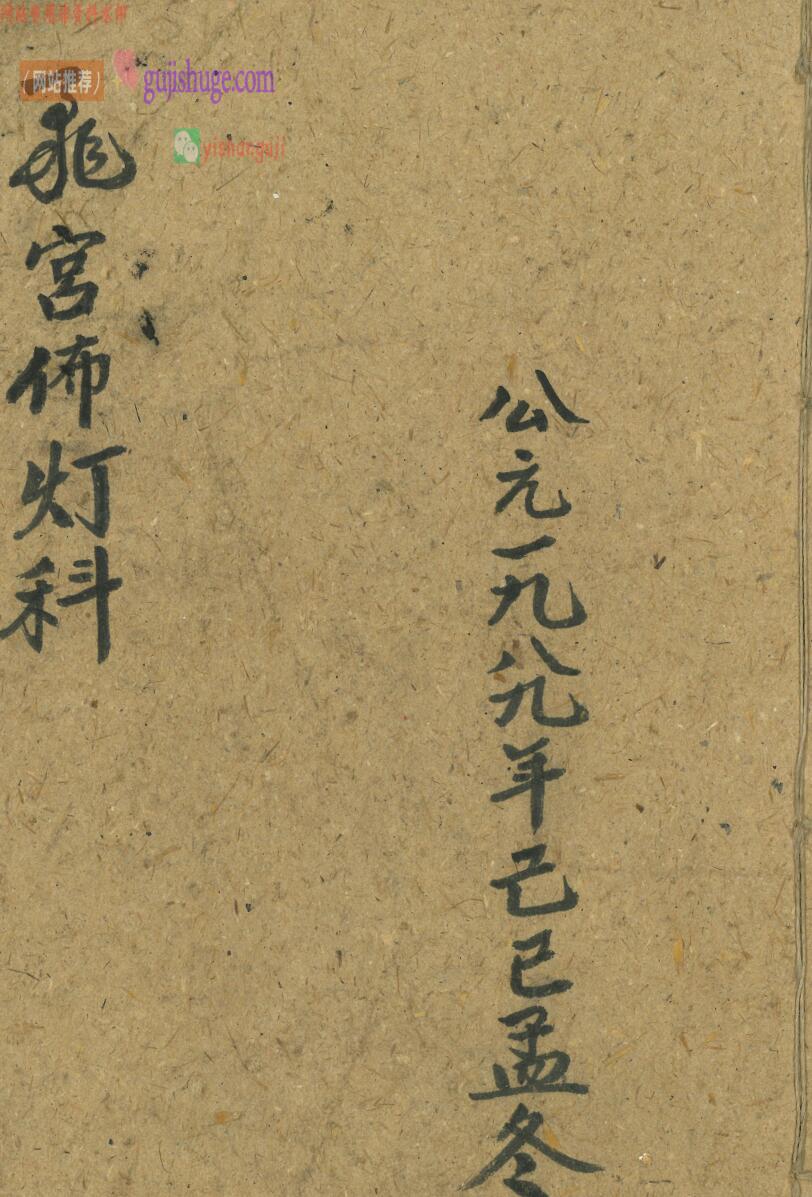 公元一九八九年己巳孟冬
宫佈灯科
(网站推荐) gujishuge.com
yishanguji